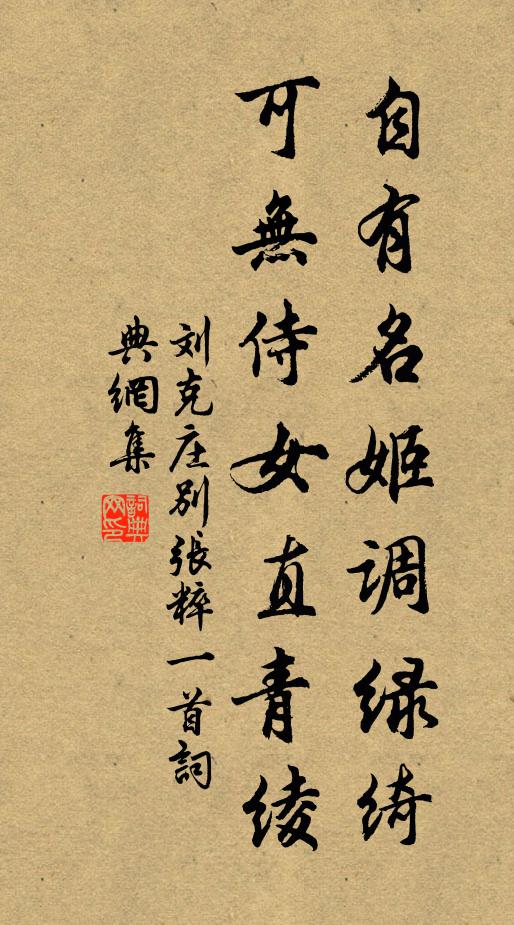 自有名姬调绿绮
可無侍女直青绫
刘克庄别張粹一首詞
典網集
詞典網印